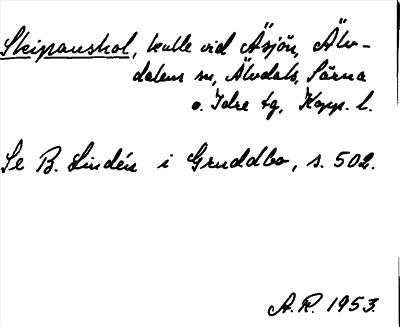 Skipanshol, kulle vid Åsjön, Älv-
dalens sn, Älvdals, Särna
o. Idre tg, Kopp. l.
Se B. Lindén i Gruddbo, s. 502.
A.R. 1953.